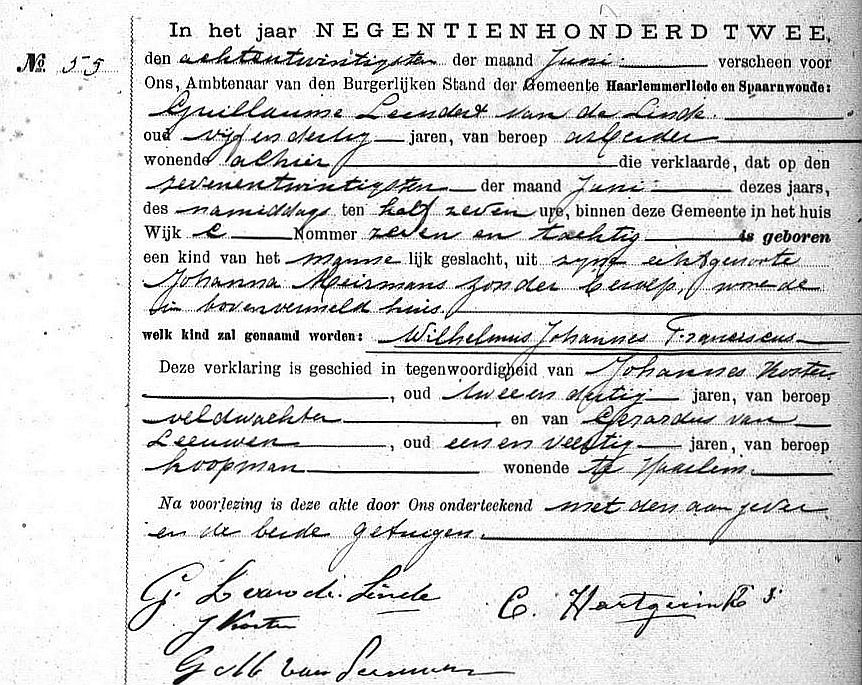 In het jaar NEGENTIENHONDERD TWEE,
No 55
den achtentwintigsten der maand Juni verscheen voor
Ons, Ambtenaar van den Burgerlijken Stand der Gemeente Haarlemmerliede en Spaarnwoude:
Guillaume Leendert van de Linde.
oud vijf en dertig jaren, van beroep arbeider
wonende alhier die verklaarde, dat op den
zevenentwintigsten der maand Juni dezes jaars,
des namiddags ten half zeven ure, binnen deze Gemeente in het huis
Wijk C Nommer zeven en tachtig is geboren
een kind van het manne lijk geslacht, uit zijne echtgenoote
Johanna Meirmans zonder beroep, wonende
in bovenvermeld huis.
welk kind zal genaamd worden: Wilhelmus Johannes Franciscus
Deze verklaring is geschied in tegenwoordigheid van Johannes Koster
, oud twee en dertig jaren, van beroep
veldwachter , en van Gerardus van
Leeuwen , oud een en veertig jaren, van beroep
koopman wonende te Haarlem.
Na voorlezing is deze akte door Ons onderteekend met den aangever
en de beide getuigen.
G. L van de Linde
C. Hartgerink
J Koster
G M van Leeuwen